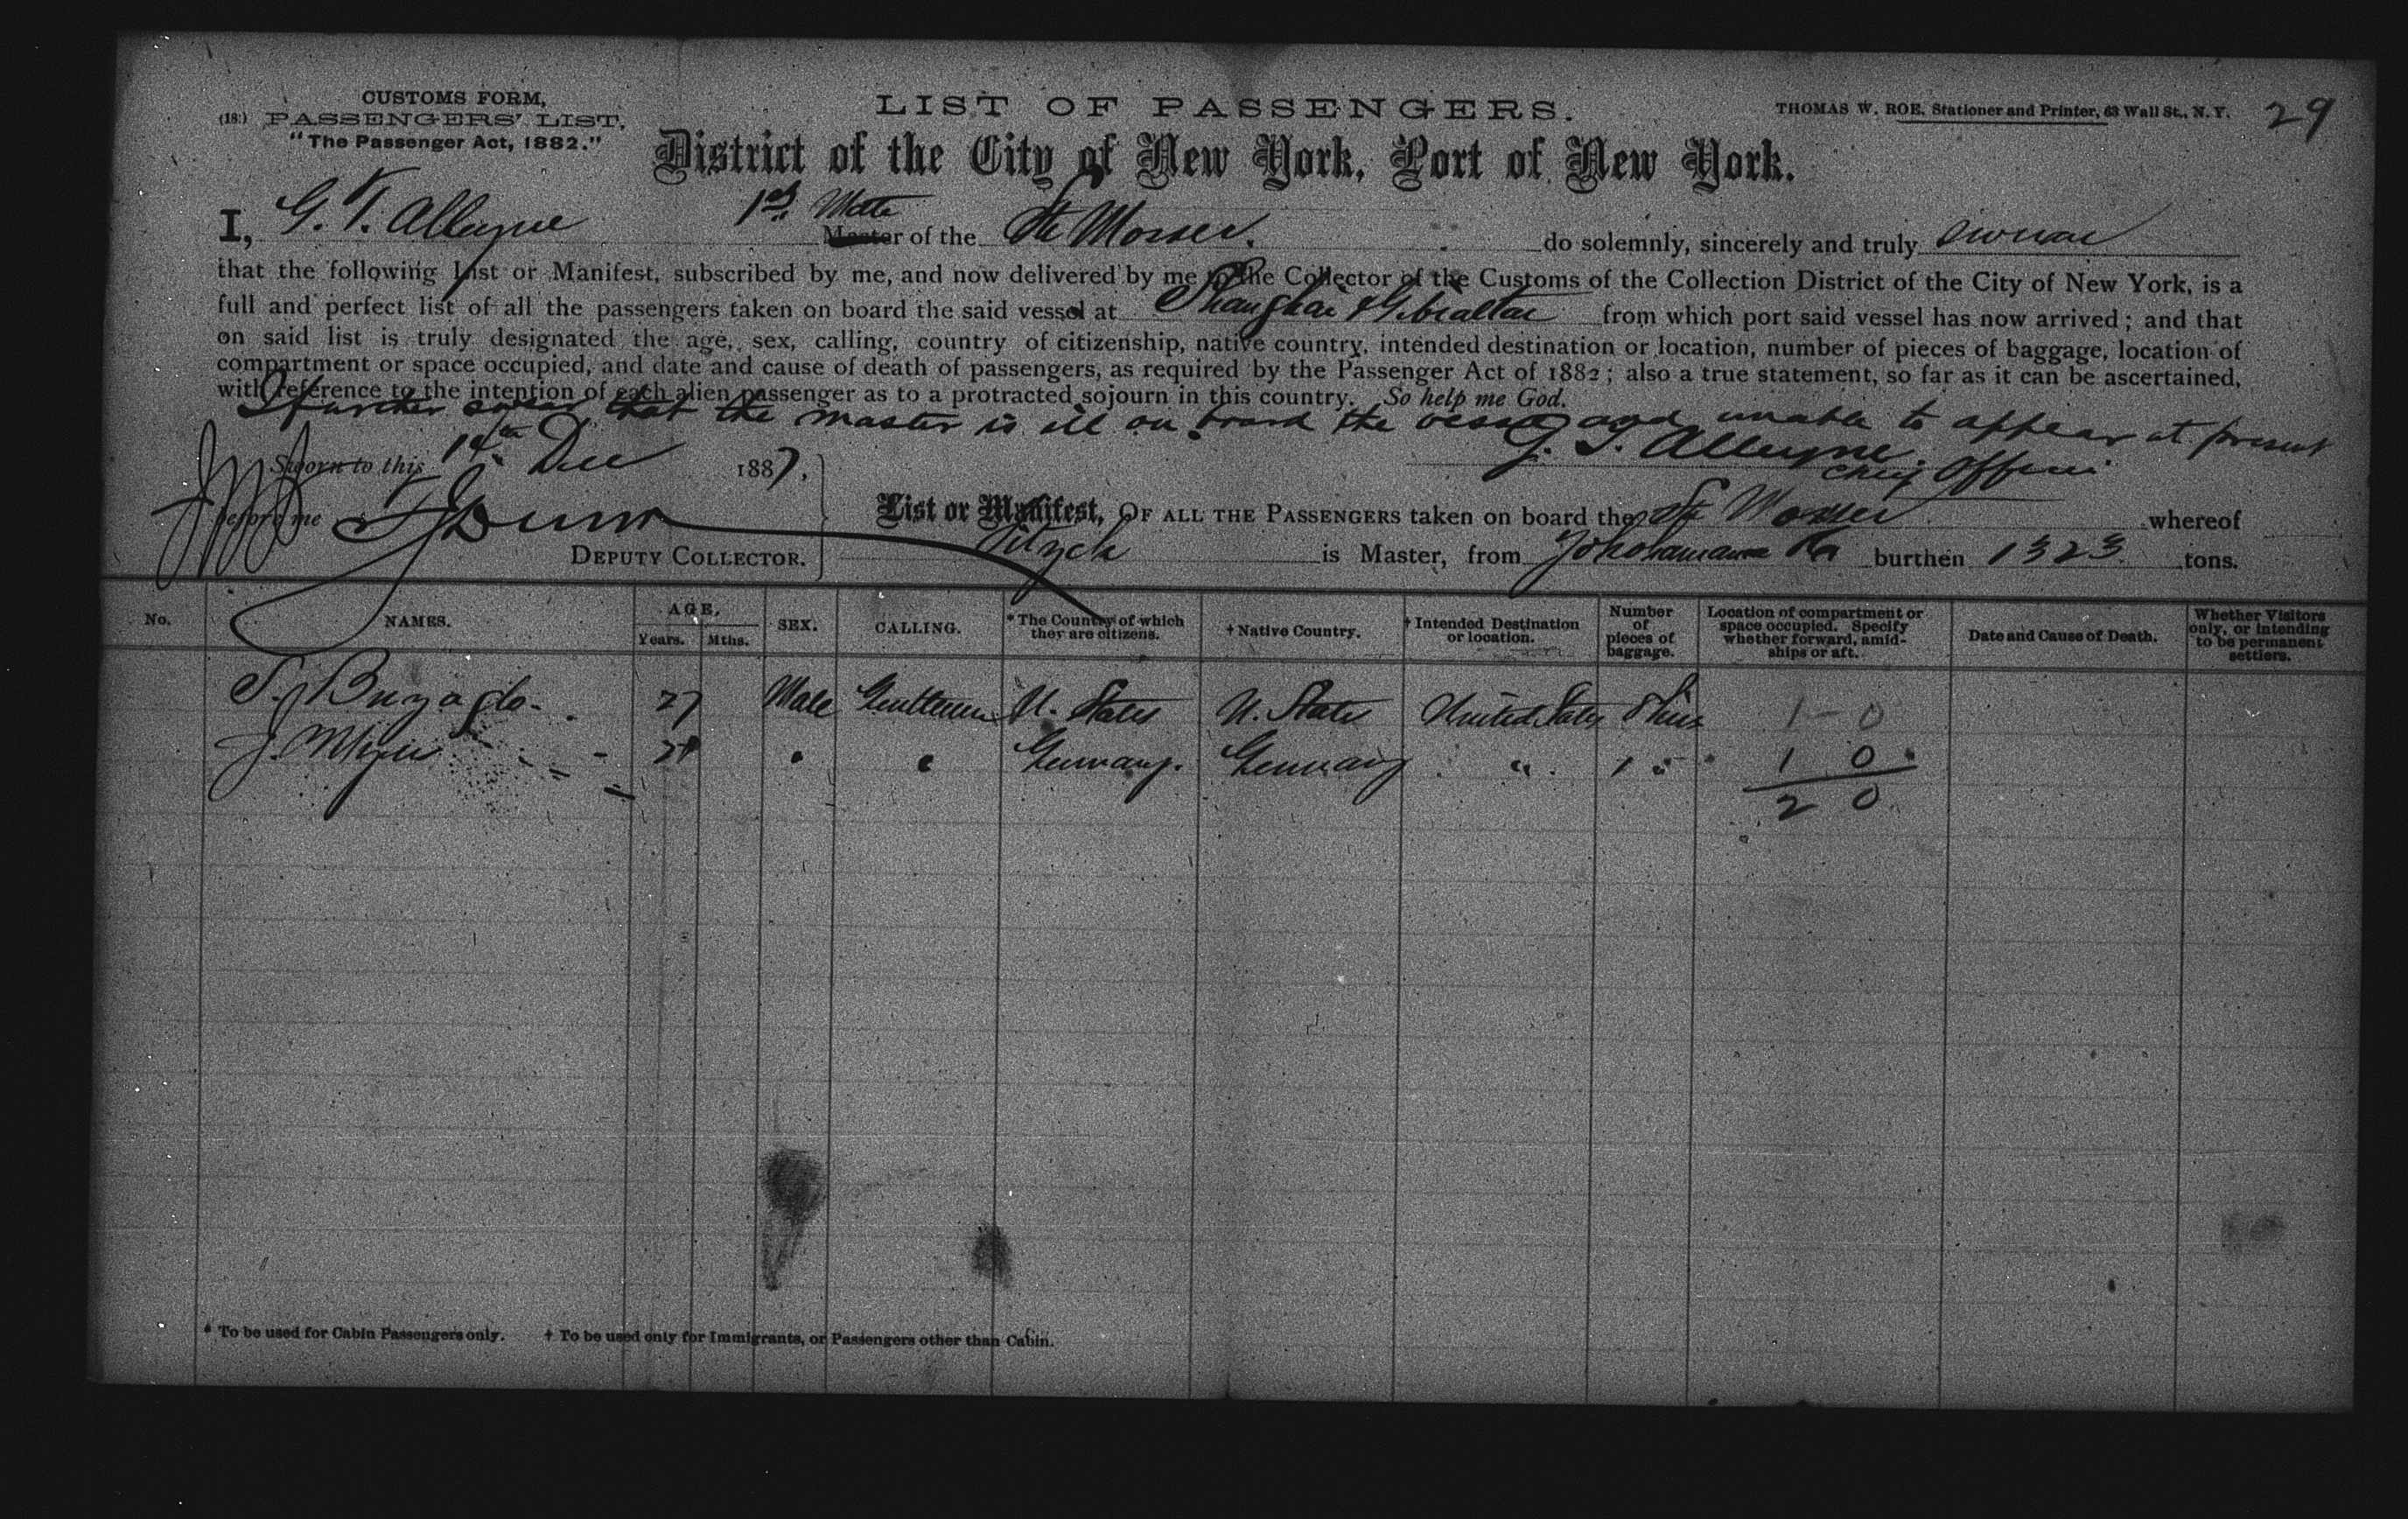 CUSTOMS FORM,
(18:) PASSENGERS' LIST,
"The Passenger Act, 1882."
LIST OF PASSENGERS.
THOMAS W. ROE, Stationer and Printer, 63 Wall St., N. Y.
29
District of the City of New York, Port of New York.
1st Mate
I, G. T. Alleyne Master of the Str do solemnly, sincerely and truly swear
that the following List or Manifest, subscribed by me, and now delivered by me to the Collector of the Customs of the Collection District of the City of New York, is a
full and perfect list of all the passengers taken on board the said vessel at Shanghai & Gibraltar from which port said vessel has now arrived; and that
on said list is truly designated the age, sex, calling, country of citizenship, native country, intended destination or location, number of pieces of baggage, location of
compartment or space occupied, and date and cause of death of passengers, as required by the Passenger Act of 1882; also a true statement, so far as it can be ascertained,
with reference to the intention of each alien passenger as to a protracted sojourn in this country. So help me God.
I further swear that the master is ill on board the vessel and unable to appear at present
G. T. Alleyne.
Chief Officer
Sworn to this Dec 1887.
before me Dunn
DEPUTY COLLECTOR.
List or Manifest, OF ALL THE PASSENGERS taken on board the Str whereof
is Master, from burthen 1323 tons.
No. NAMES. AGE. Years. Mths. SEX. CALLING. * The Country of which they are citizens. † Native Country. † Intended Destination or location. Number of pieces of baggage. Location of compartment or space occupied. Specify whether forward, amidships or aft. Date and Cause of Death. Whether Visitors only, or intending to be permanent settlers.
27 Male Gentleman U. States U. States United States 1 - 0
J. Germany. Germany " 1 " 1 0
2 0
* To be used for Cabin Passengers only. † To be used only for Immigrants, or Passengers other than Cabin.